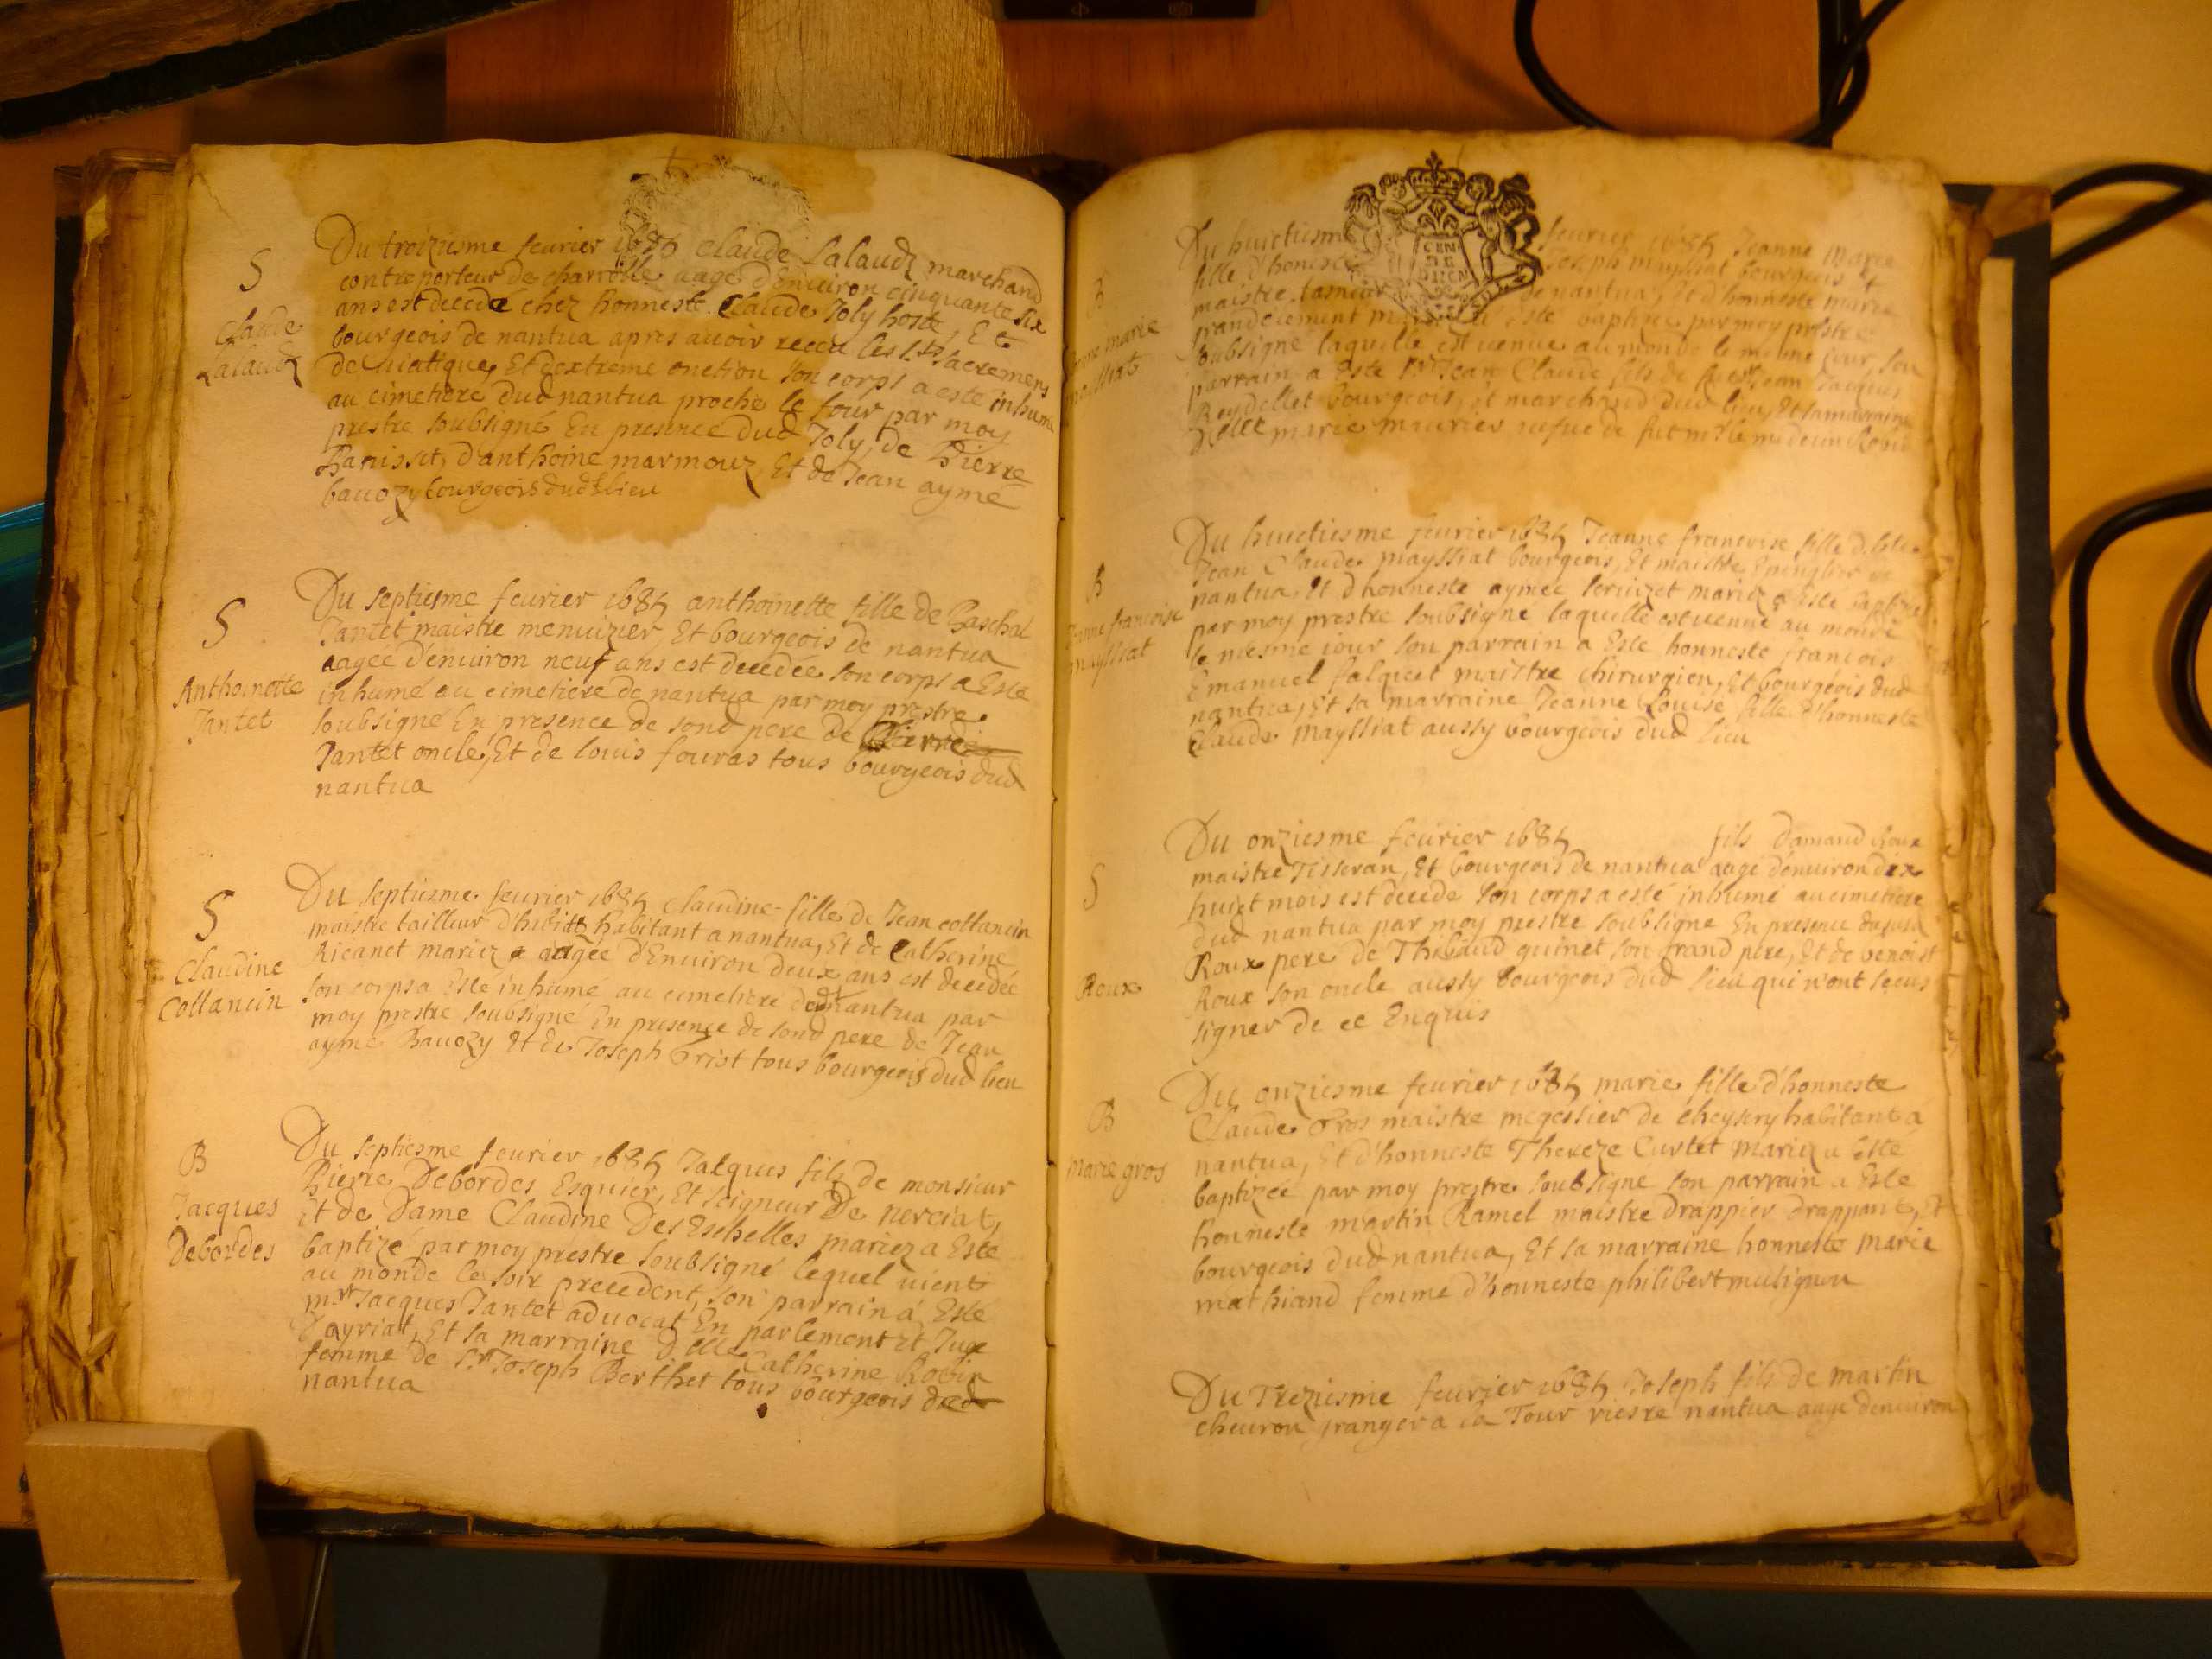 S
Claude
Lalaudz
Du troiziesme feurier 1685 Claude Lalaudz marchand
contreporteur de charrolle aagé d'Enuiron cinquante six
ans est decede chez honneste Claude Joly hoste, Et
bourgeois de nantua apres auoir receu les Sts sacremens
de Viatique, Et d'extreme onction son corps a este inhumé
au cimetiere dud nantua proche le four par moy
prestre soubsigné En presence dud Joly, de Pierre
Panisset, d'anthoine marmouz, Et de Jean aymé
bauozy bourgeois dud lieu
S
Anthoinette
Jantet
Du septiesme feurier 1685 anthoinette fille de Paschal
Jantet maistre menuizier, Et bourgeois de nantua
aagée d'enuiron neuf ans est decedée son corps a Este
inhumé au cimetiere de nantua par moy prestre
soubsigné En presence de sond pere de Pierre
Jantet oncle, Et de louis fouras tous bourgeois dud
nantua
S
Claudine
Collancin
Du septiesme feurier 1685 Claudine fille de Jean collancin
maistre tailleur d'habitz habitant a nantua, Et de Catherine
Ricanet mariez a aagée d'Enuiron deux ans est decedée
son corps a Este inhumé au cimetiere dud nantua par
moy prestre soubsigné En presence de sond pere de Jean
aymé Bauozy Et de Joseph Grist tous bourgeois dud lieu
B
Jacques
Debordes
Du septiesme feurier 1685 Jacques fils de monsieur
Pierre Debordes Esquier, Et seigneur De nerciat,
Et de Dame Claudine Des Eschelles mariez a Este
baptizé par moy prestre soubsigné lequel uient
au monde le soir precedent, son parrain á Esté
mr Jacques Jantet aduocat En parlement Et Juge
dayriat, Et la marraine Dlle Catherine Robin
femme de Sr Joseph Berthet tous bourgeois dud
nantua
B
marie
Du huictiesme feurier 1685 Jeanne Marie
fille d'honeste Joseph mayssiat bourgeois Et
maistre de nantua, Et d'honneste marie
a este baptizée par moy prestre
soubsigné laquelle est uenue au monde le mesme jour, son
parrain a Este Sr Jean Claude fils de Jean Jacques
Reydellet bourgeois, et marchand dud lieu, Et sa marraine
Dlle marie maurier uefue de fut mr le medecin Robin
B
Jeanne francoise
mayssiat
Du huictiesme feurier 1685 Jeanne francoise fille d'hble
Jean Claude mayssiat bourgeois, Et maistre Epinglier de
nantua, Et d'honneste aymée seruizet mariez a Este baptizée
par moy prestre soubsigné laquelle est uenue au monde
le mesme iour son parrain a Este honneste francois
Emanuel falquet maistre chirurgien, Et bourgeois dud
nantua, Et sa marraine Jeanne Louise fille d'honneste
Claude Mayssiat aussy bourgeois dud lieu
S
Roux
Du onziesme feurier 1685 fils damand Roux
maistre Tisseran, Et bourgeois de nantua aagé d'enuiron dix
huict mois est decede son corps a esté inhumé au cimetiere
dud nantua par moy prestre soubsigné En presence dud
Roux pere de Thibaud guinet son grand pere, Et de benoist
Roux son oncle aussy bourgeois dud lieu qui n'ont sceus
signer de ce Enquis
B
marie gros
Du onziesme feurier 1685 marie fille d'honneste
Claude Gros maistre megessier de cheysery habitant á
nantua, Et d'honneste Thereze Curtet mariez a Este
baptizée par moy prestre soubsigné son parrain a Este
honneste martin Ramel maistre drappier drappant, Et
bourgeois dud nantua, Et sa marraine honneste marie
mathiand femme d'honneste philibert mulignon
Du Treziesme feurier 1685 Joseph fils de martin
cheuron granger a la Tour riesre nantua aagé denuiron